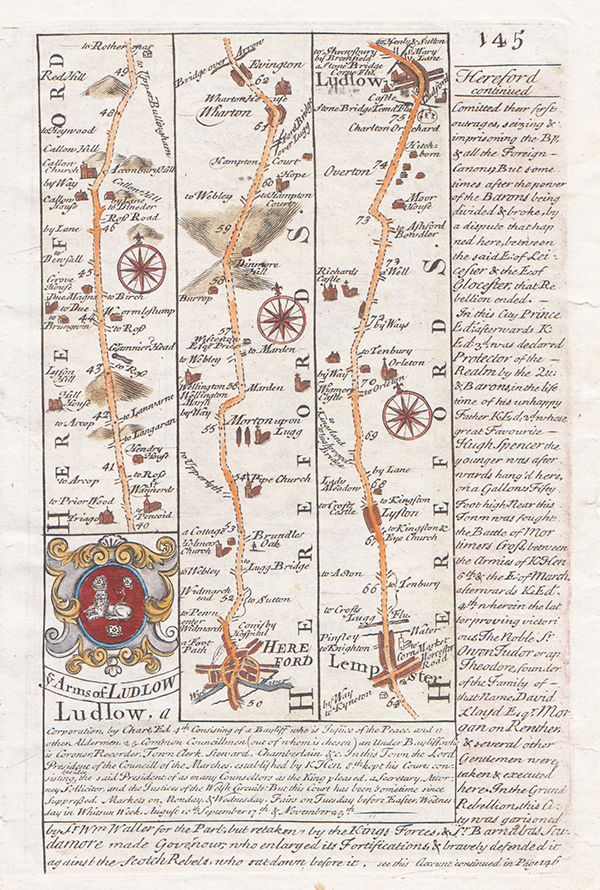 145
Hereford
continued
Comitted their first
outrages, seizing &
imprisoning the Bp.
& all the Foreign
Canons, But some
times after the power
of the Barons being
divided & broke, by
a dispute that hap
ned here, between
the said E. of Lei-
cester & the E. of
Glocester, that Re
bellion ended.
In this City Prince
Ed: afterwards K.
Ed. 3d. was declared
Protector of the
Realm by the Qu:
& Barons, in the life
time of his unhappy
Father K. Ed. 2d. whose
great Favourite
Hugh Spencer the
younger was after
wards hang'd here,
on a Gallows Fifty
Foot high. Near this
Town was fought
the Battle of Mor
timers Cross between
the Armies of K. Hen
6th. & the E. of March,
afterwards K. Ed.
4th. wherein the lat
ter proving victori
ous, The Noble Sr.
Owen Tudor or ap.
Theodore, founder
of the Family of
that Name, David
Lloyd Esqr. Mor
gan on Renther,
& several other
Gentlemen were
taken & executed
here. In the Grand
Rebellion this Ci-
ty was garisoned
by Sr. Wm. Waller for the Parlt. but retaken by the Kings Forces, & Sr. Barnabas Scu
damore made Govenour, who enlarged its Fortifications, & bravely defended it
against the Scotch Rebels, who sat down before it. see this Account continued in Page 146
HEREFORD
to Rotherwas
Red Hill
49
to Upper Bullingham
48
to Heywood
Callow Hill
Callow Church
Aconbury Hill
by Way
Callow Hill
Callow House
by Lane to Dineder
47
Ross Road
by Lane
46
to Densfall
45
Grove House
Due Magna
to Birch
to Due
44
Wormlestump
to Brungwin
to Ross
Gammer Head
43
to Ross
Lyston Hill
Hill House
42
to Lanwarne
to Arcop
to Langaran
Hendry House
41
to Arcop
to Ross
St Waynerds
to Prior Wood
to Pencoid
Triago
40
ye Arms of LUDLOW
Ludlow, a
Corporation by Chart. Ed. 4th. Consising of a Bayliff who is Justice of the Peace, and 11
other Aldermen 25 Common Councilmen (out of whom is chosen) an Under Bayliff who
is Coroner, Recorder, Town Clerk, Steward, Chamberlain &c. In this Town the Lord
President of the Councill of the Marches, established by K. Hen. 8th. kept his Court con-
sisting, besides the said President of as many Counsellors as the King pleased, a Secretary, Attor-
ney, Solliciter, and the Justices of the Welsh Circuits But this Court has been sometime since
Suppressed. Markets on, Monday, & Wednesday. Fairs on Tuesday before Easter, Wednes
day in Whitsun Week, August 10th. September 17th. & November 25th.
HEREFORDS.
Arrow
Bridge over
Ewington
62
Wharton House
Wharton
61
Ford Bridge over Lugg
Hampton Court
Hope
60
to Webley
to Hampton Court
59
Dinmore Hill
58
Burrop
57
Wisteston
to Marden
to Webley
Wellington
56
Marden
Wellington Marsh
by Way
55
Morton upon Lugg
to Upperlyth
54
Pipe Church
a Cottage
53
Brundles Oak
Holmor Church
Lugg Bridge
to Webley
Widmarch end
52
to Sutton
to Penn
enter Widmarsh
Conisby Hospital
Foot Path
HERE FORD
Wye River
50
HEREFORDS.
to Henly & Sutton
to Shrewsbury by Bromfield
St Mary Lane
a Stone Bridge
Corve Flu.
Ludlow
Castle
Stone Bridge Temd Flu.
75
Charlton Orchard
Hitch born
Overton
74
Moor House
73
to Ashford Bowdler
Well
Richards Castle
72
by Ways
71
to Tenbury
by Way
Orleton
70
to Orleton
to Wigmore Castle
69
by Lane
Lady Meadow
68
to Kingston
to Crofts Castle
Lyston
67
to Kingston & Eye Church
to Aston
Tenbury
66
to Crofts
Lugg Flu.
Pinsley
to Knighton
Water
Corn Market
Worcester Road
Lempster
by Way to Kyneton
64